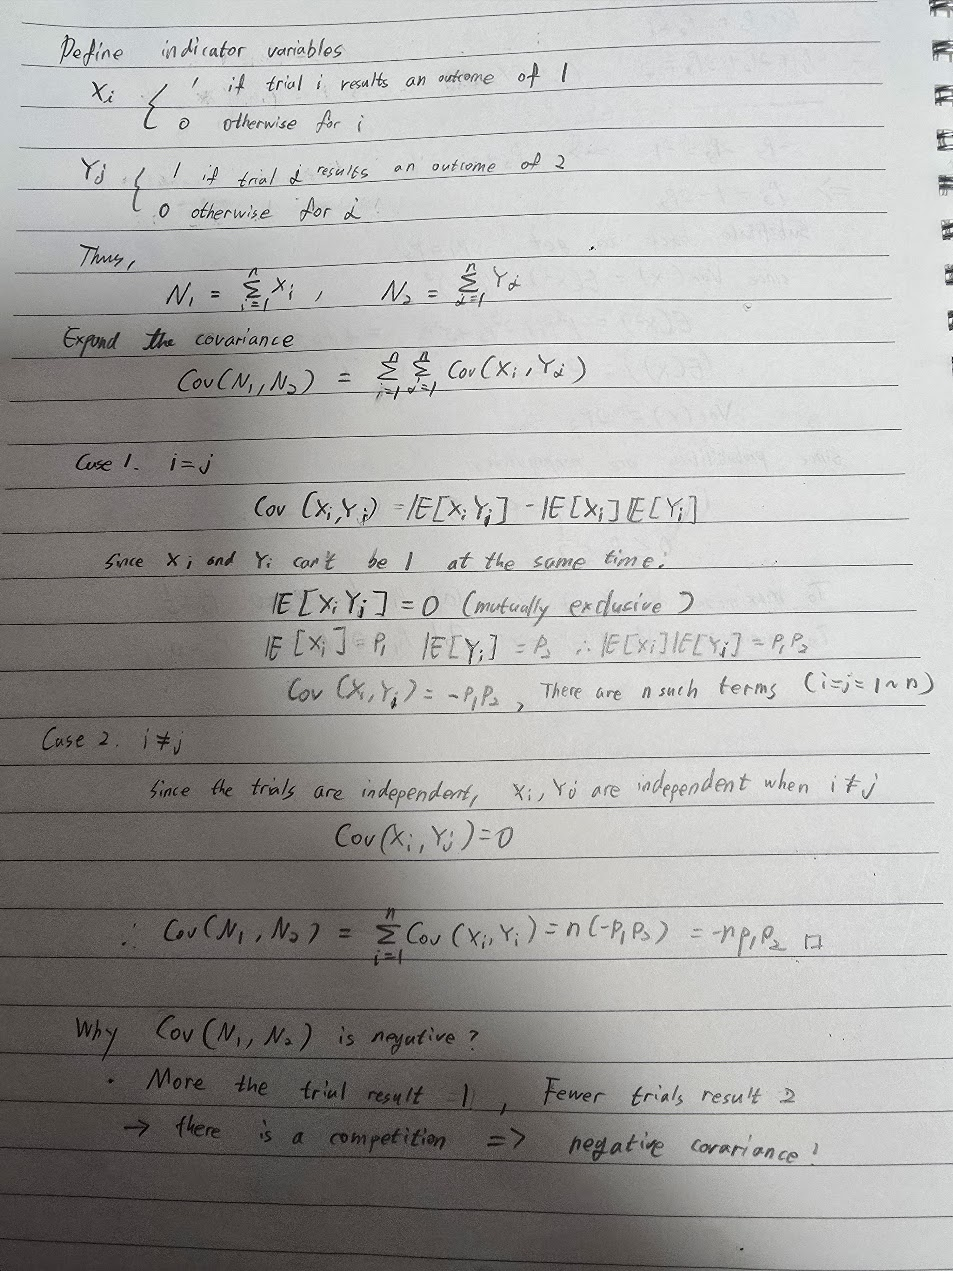 Define indicator variables
Xi { 1 if trial i results an outcome of 1
0 otherwise for i
Yj { 1 if trial j results an outcome of 2
0 otherwise for j
Thus,
N₁ = Σⁿᵢ₌₁ Xi , N₂ = Σⁿⱼ₌₁ Yj
Expand the covariance
Cov(N₁, N₂) = Σⁿᵢ₌₁ Σⁿⱼ₌₁ Cov(Xi, Yj)
Case 1. i = j
Cov (Xi, Yi) = 𝔼[Xi Yi] - 𝔼[Xi] 𝔼[Yi]
Since Xi and Yi can't be 1 at the same time:
𝔼[Xi Yi] = 0 (mutually exclusive)
𝔼[Xi] = P₁ 𝔼[Yi] = P₂ ∴ 𝔼[Xi]𝔼[Yi] = P₁P₂
Cov (Xi, Yi) = -P₁P₂ , There are n such terms (i=j=1~n)
Case 2. i ≠ j
Since the trials are independent, Xi, Yj are independent when i ≠ j
Cov(Xi, Yj) = 0
∴ Cov(N₁, N₂) = Σⁿᵢ₌₁ Cov (Xi, Yi) = n(-P₁P₂) = -np₁P₂ □
Why Cov(N₁, N₂) is negative?
· More the trial result 1 , Fewer trials result 2
→ there is a competition => negative covariance!